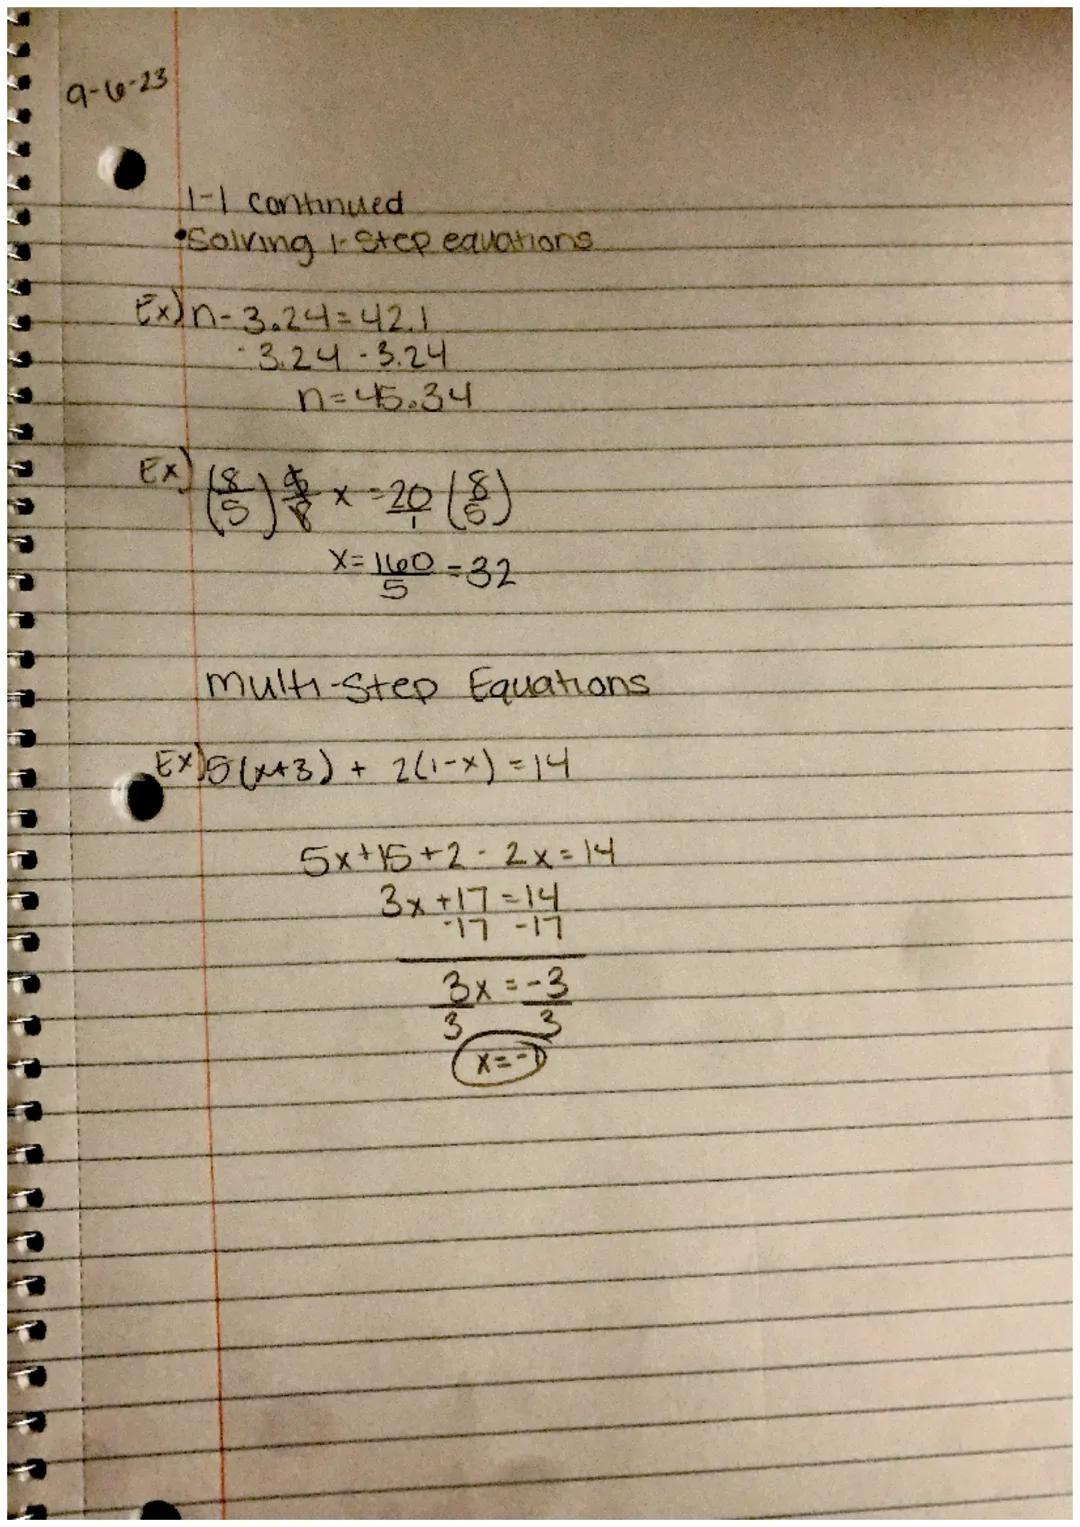 9-6-23
1-1 continued
•Solving 1-Step equations
Ex) n-3.24=42.1
-3.24 -3.24
n=45.34
Ex) (8/5) 5/8 x = 20/1 (8/5)
x=160/5=32
Multi-Step Equations
Ex) 5(x+3) + 2(1-x)=14
5x+15+2-2x=14
3x+17=14
-17 -17
3x=-3
3 3
x=-1